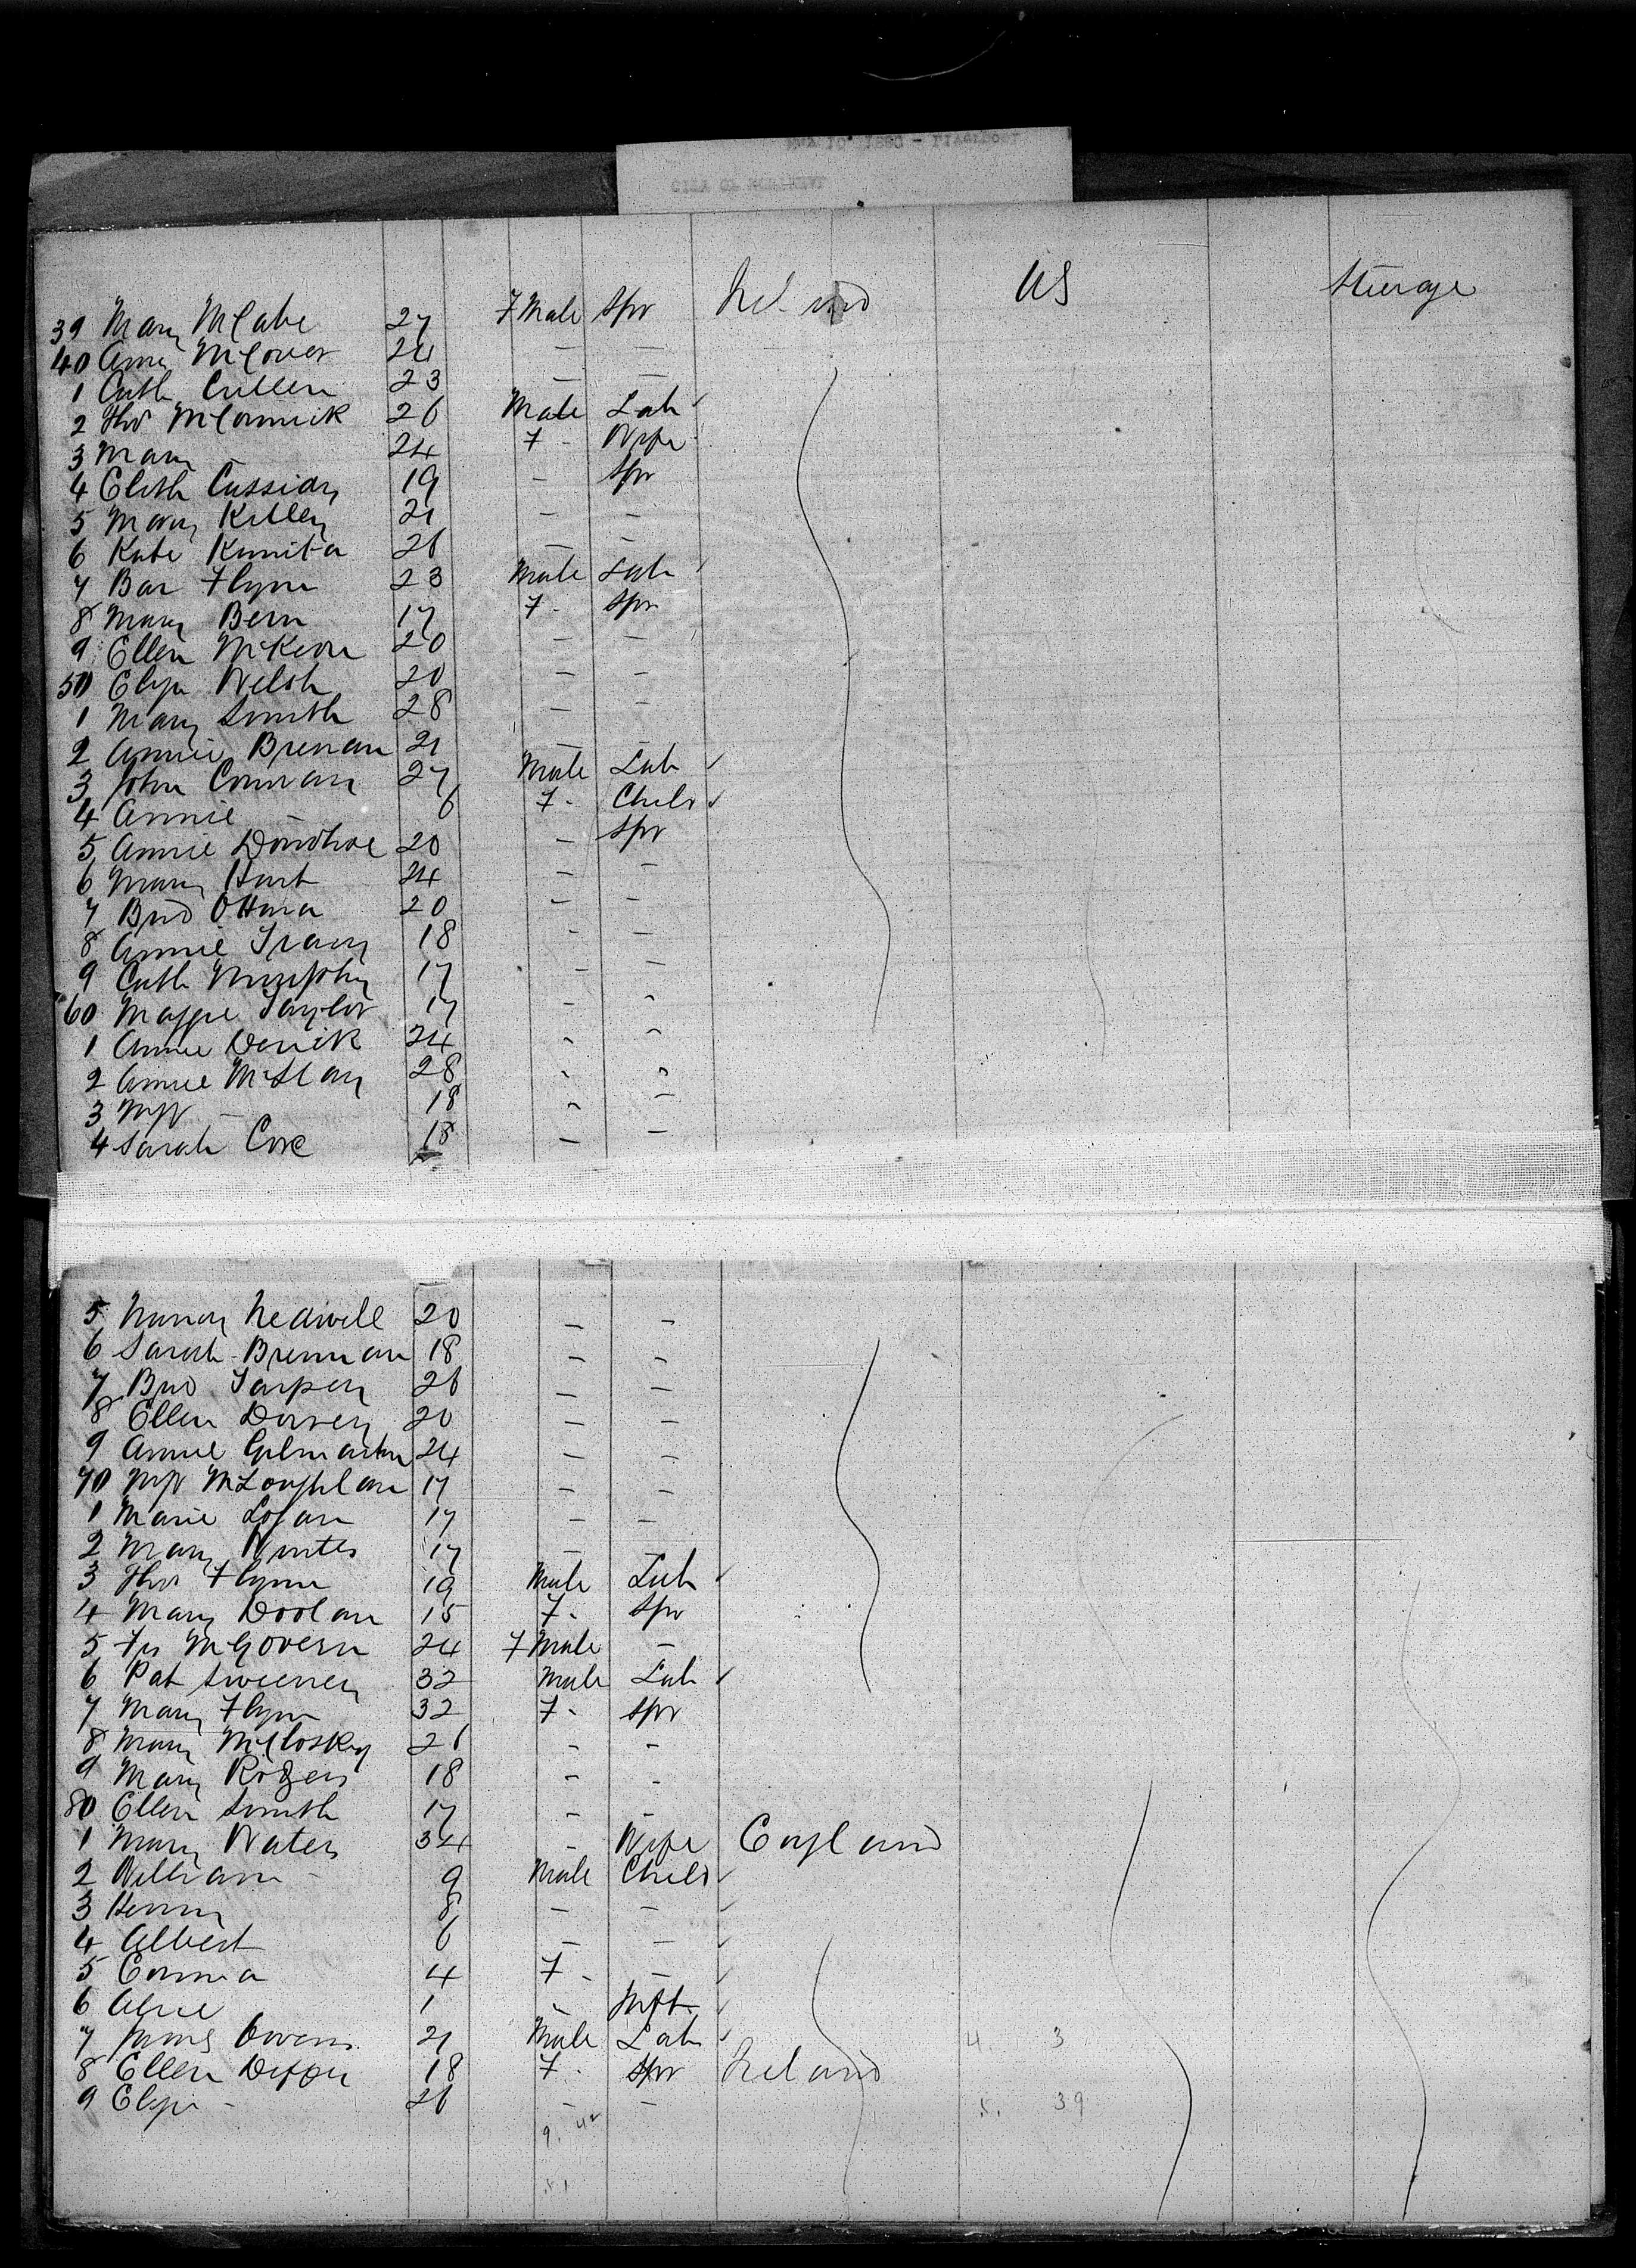 Ireland US Steerage
39 Mary McCabe 27 F Male Spr
40 Annie McGover 24 — —
1 Cath Cullen 23 — —
2 Thos McCormick 26 Male Lab
3 Mary — 24 F - Wife
4 Elisth Cassidy 19 - Spr
5 Mary Kelley 21 - -
6 Kate 26 — -
7 Bar Flynn 23 Male Lab
8 Mary Bern 17 F - Spr
9 Ellen McKeon 20 — —
50 Eliza Welsh 20 — —
1 Mary Smith 28 — —
2 Annie Brenan 21 — —
3 John Conway 27 Male Lab
4 Annie — 6 F - Child
5 Annie Donohoe 20 — Spr
6 Mary Hart 24 — —
7 Brid OHara 20 - -
8 Annie Tracy 18 - -
9 Cath Murphy 17 - -
60 Maggie Taylor 17 - -
1 Annie Derick 24 - -
2 Annie 28 - -
3 Mgt — 18 - -
4 Sarah Coxe 18 — —
5 Nancy Nedwell 20 — —
6 Sarah Brennan 18 — -
7 Brid Tarpey 26 — —
8 Ellen Dorsey 20 — —
9 Annie Gilmartin 24 — —
70 Mgt McLoughlan 17 — —
1 Marie Logan 17 — —
2 Mary Winters 17 — —
3 Thos Flynn 19 Male Lab
4 Mary Doolan 15 F - Spr
5 McGovern 24 F Male -
6 Pat Sweeney 32 Male Lab
7 Mary Flynn 32 F - Spr
8 Mary McCloskey 26 - -
9 Mary Rogers 18 - -
80 Ellen Smith 17 - -
1 Mary Waters 34 - Wife England
2 William - 9 Male Child
3 Henry 8 — -
4 Albert 6 — —
5 Emma 4 F - —
6 Alice 1 - Inft
7 James Owens 21 Male Lab 4. 3
8 Ellen 18 F - Spr Ireland
9 Eliza - 26 - — 39